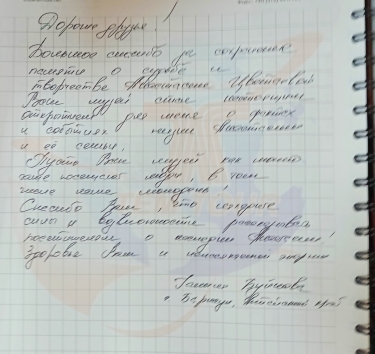 Дорогие друзья!
Большое спасибо за сохранение
памяти о судьбе и
творчестве Анастасии Цветаевой
Ваш музей стал настоящим
открытием для меня о фактах
и событиях жизни Анастасии
и её семьи.
Пусть Ваш музей как можно
чаще посещают люди, в том
числе наша молодежь!
Спасибо Вам, что находите
силы и возможности рассказывать
посетителям о жизни Анастасии!
Здоровья Вам и неиссякаемой энергии
Галина
г. Барнаул, Алтайский край